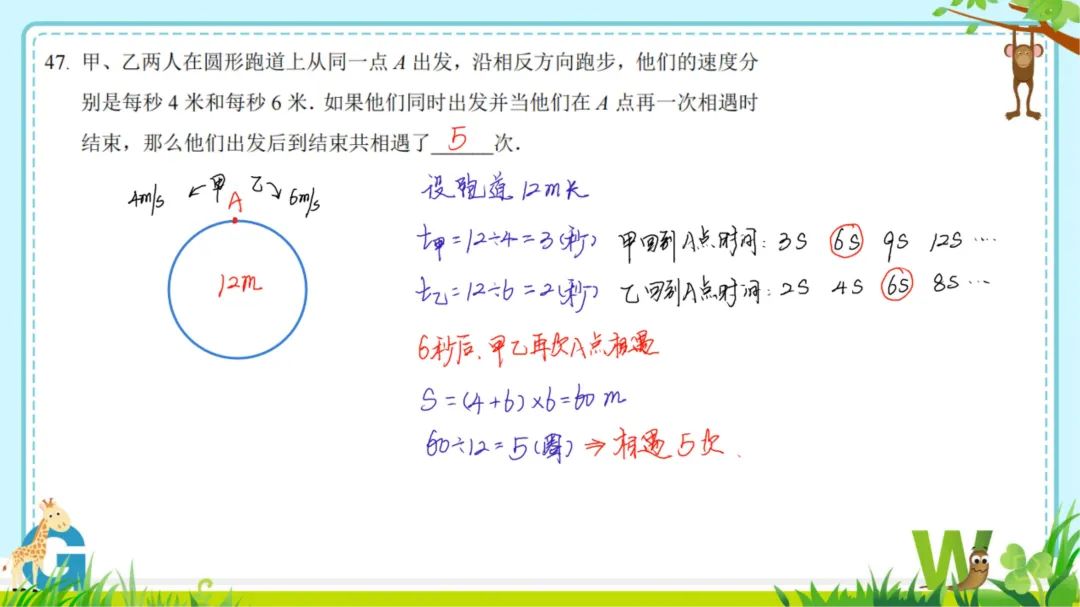 47. 甲、乙两人在圆形跑道上从同一点 A 出发，沿相反方向跑步，他们的速度分
别是每秒 4 米和每秒 6 米．如果他们同时出发并当他们在 A 点再一次相遇时
结束，那么他们出发后到结束共相遇了 5 次．
4m/s ← 甲 乙 → 6m/s
A
12m
设跑道 12m长
t甲 = 12÷4 = 3(秒) 甲回到A点时间：3S 6S 9S 12S ····
t乙 = 12÷6 = 2(秒) 乙回到A点时间：2S 4S 6S 8S ···
6秒后、甲乙再次A点相遇
S = (4+6)×6=60 m
60÷12 = 5(圈) ⇒ 相遇 5次．
G
W